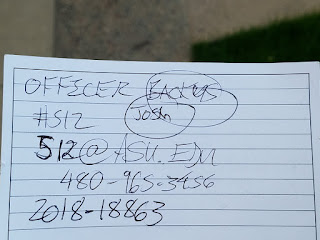 OFFICER BACKUS
#512 JOSH
512@ASU.EDU
480-965-3456
2018-18863